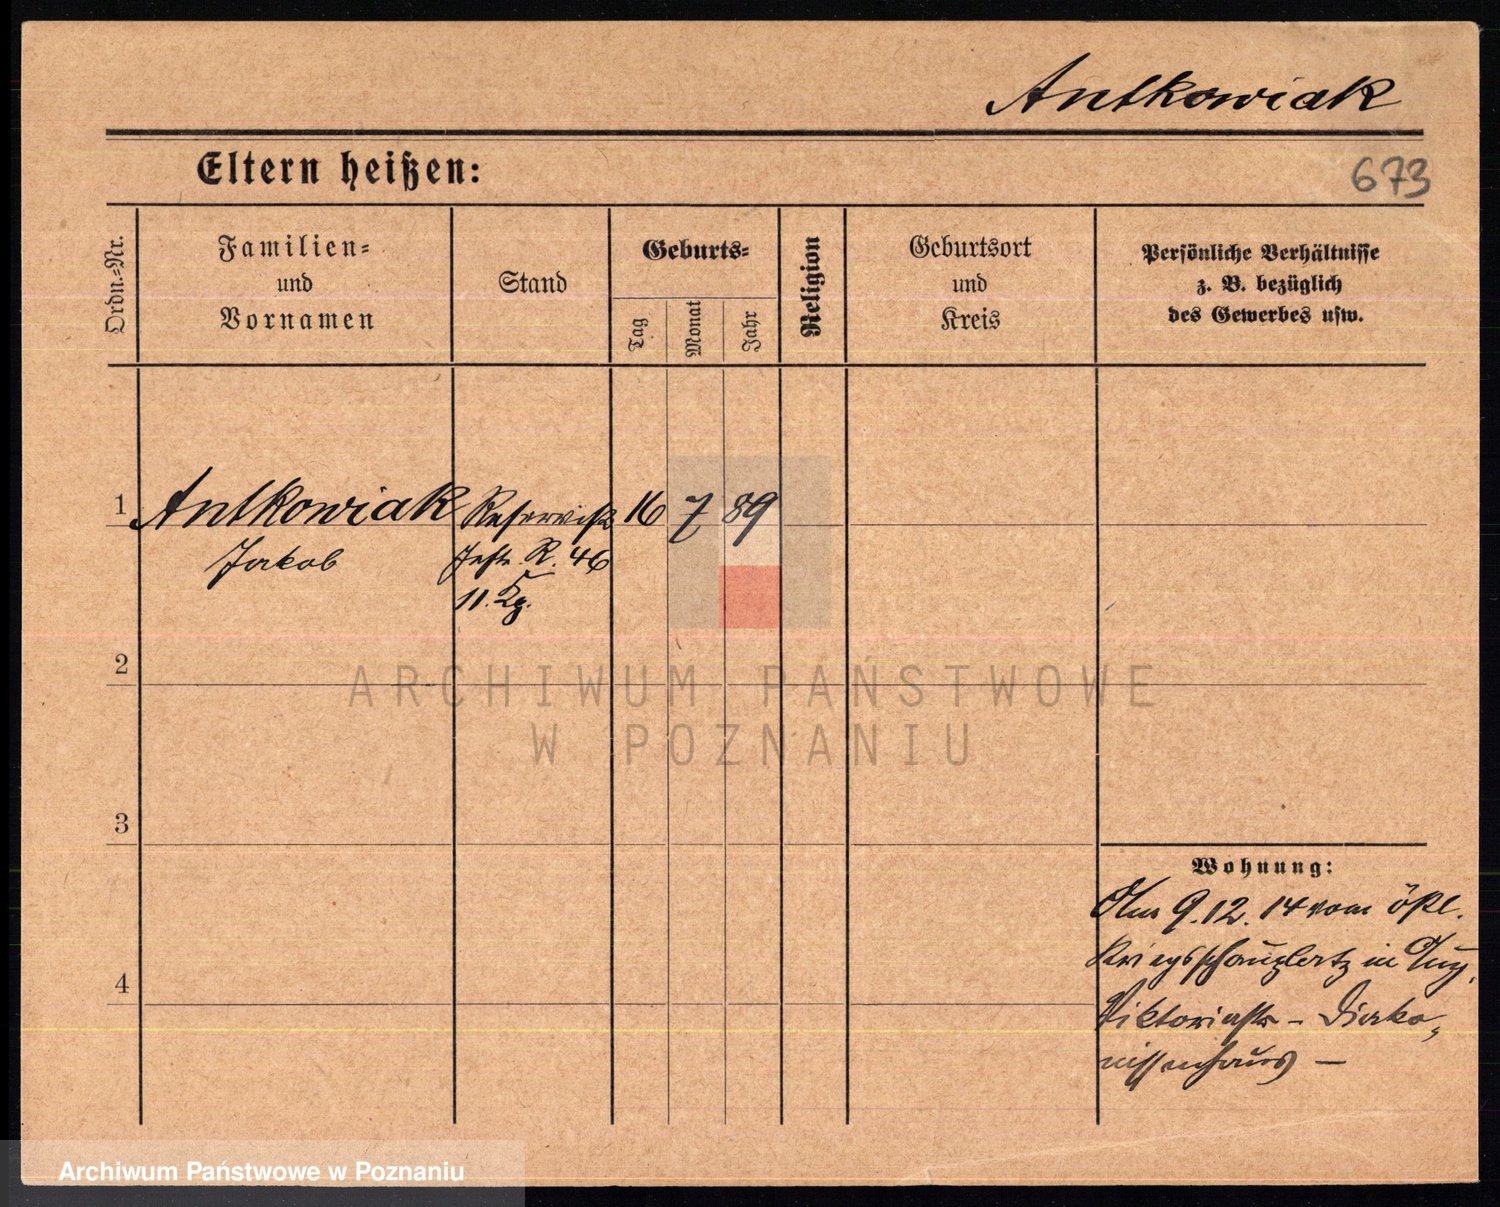 Antkowiak
Eltern heißen:
673
Ordn.-Nr.
Familien-
und
Vornamen
Stand
Geburts-
Tag
Monat
Jahr
Religion
Geburtsort
und
Kreis
Persönliche Verhältnisse
z. B. bezüglich
des Gewerbes usw.
1
Antkowiak Reservist 16 7 89
Jakob
Inftr. R. 46
11. Kp.
2
ARCHIWUM PAŃSTWOWE
W POZNANIU
3
Wohnung:
Am 9.12.14 vom östl.
Kriegsschauplatz in
4
Viktoriastr – Diako-
nissenhaus –
Archiwum Państwowe w Poznaniu